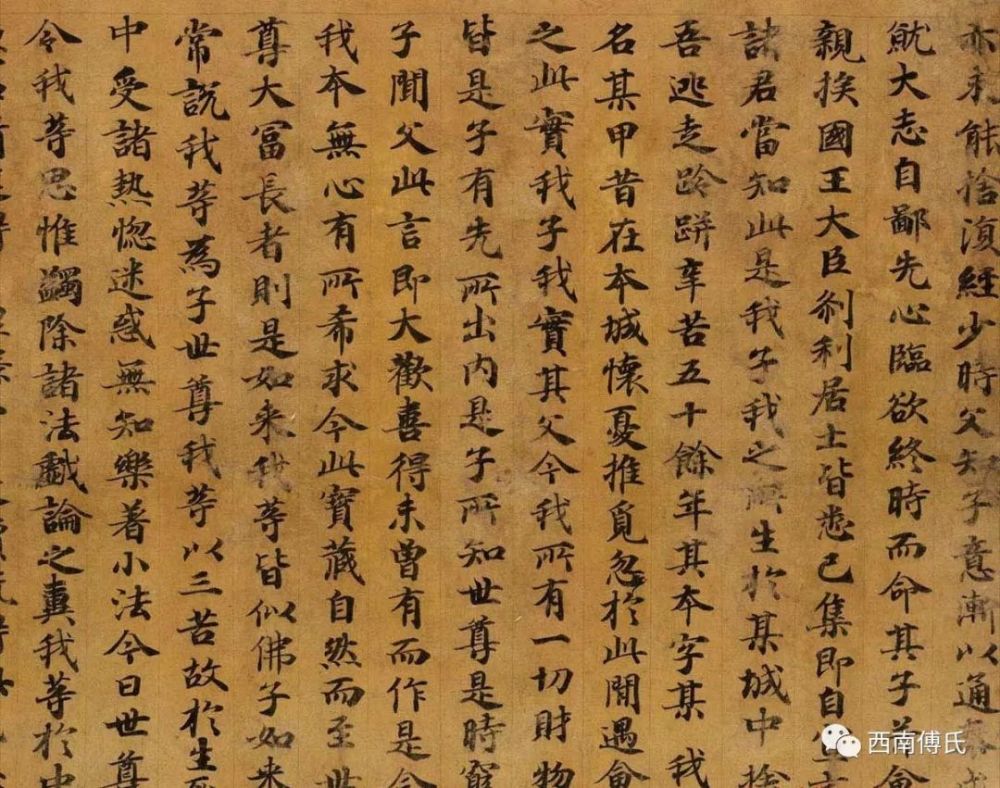 亦未能捨復經少時父知子意漸以通泰
就大志自鄙先心臨欲終時而命其子并會
親挨國王大臣剎利居士皆悉已集即自宣言
諸君當知此是我子我之所生於某城中捨
吾逃走跉跰辛苦五十餘年其本字某 我
名某甲昔在本城懷憂推覓忽於此間遇會
之此實我子我實其父今我所有一切財物
皆是子有先所出內是子所知世尊是時窮
子聞父此言即大歡喜得未曾有而作是念
我本無心有所希求今此寶藏自然而至世
尊大冨長者則是如来我等皆似佛子如来
常説我等為子世尊我等以三苦故於生死
中受諸熱惚迷惑無知樂著小法今日世尊
令我等思惟蠲除諸法戲論之糞我等於中
西南傅氏